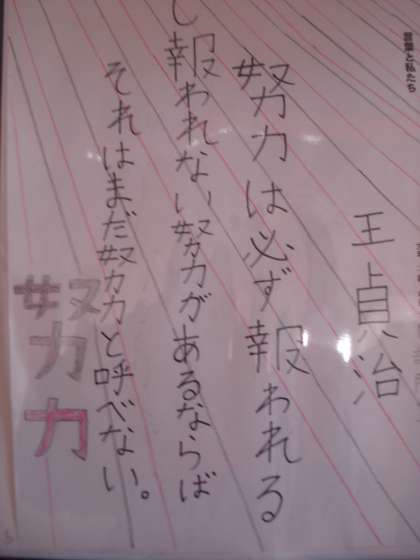 言葉と私たち
王貞治
努力は必ず報われる
し報われない努力があるならば
それはまだ努力と呼べない。
努力